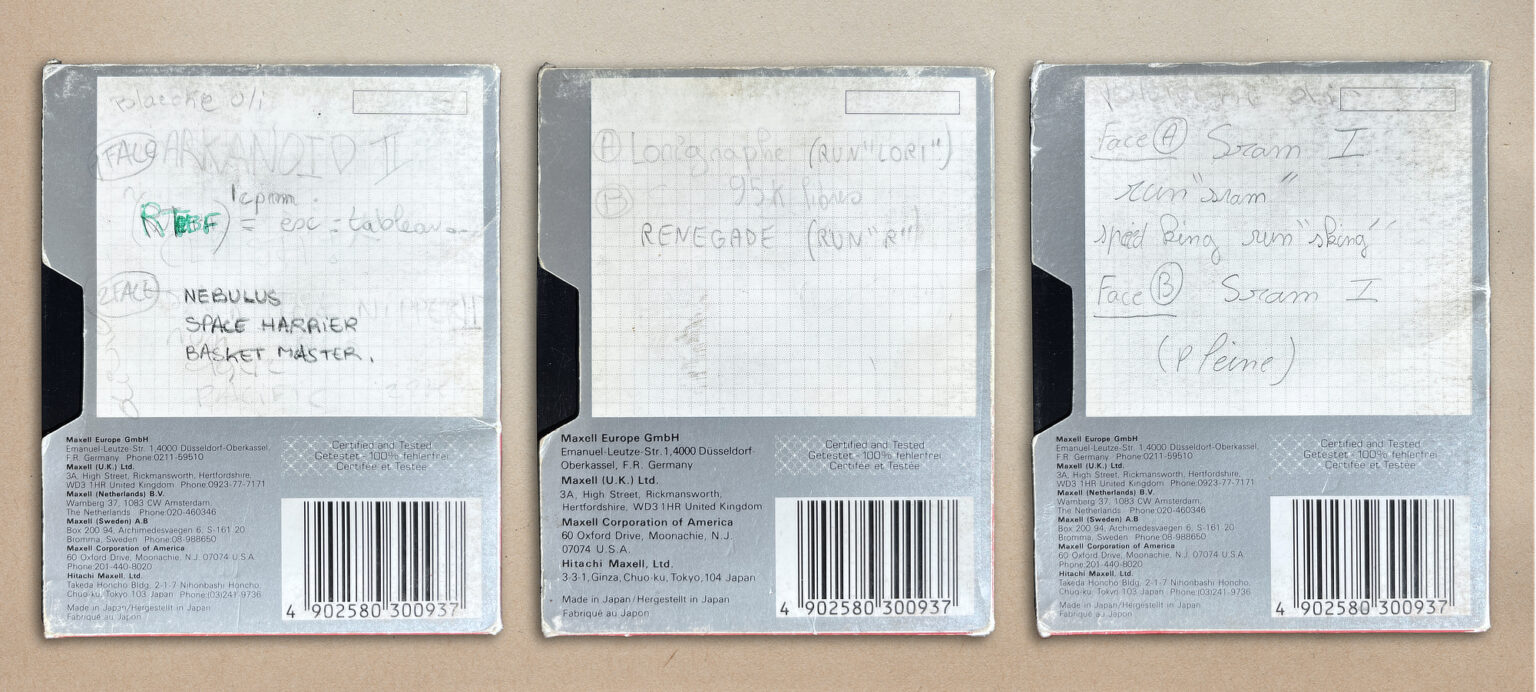 oli
1 FACE ARKANOID II
1cpmm.
RTBF) = esc = tableau
2 FACE
NEBULUS
SPACE HARRIER
BASKET MASTER.
PACIFIC
Maxell Europe GmbH
Emanuel-Leutze-Str. 1,4000 Düsseldorf-Oberkassel,
F.R. Germany Phone:0211-59510
Maxell (U.K.) Ltd.
3A, High Street, Rickmansworth, Hertfordshire,
WD3 1HR United Kingdom Phone:0923-77-7171
Maxell (Netherlands) B.V.
Wamberg 37, 1083 CW Amsterdam,
The Netherlands Phone:020-460346
Maxell (Sweden) A.B
Box 200 94, Archimedesvaegen 6, S-161 20
Bromma, Sweden Phone:08-988650
Maxell Corporation of America
60 Oxford Drive, Moonachie, N.J. 07074 U.S.A.
Phone:201-440-8020
Hitachi Maxell, Ltd.
Takeda Honcho Bldg. 2-1-7 Nihonbashi Honcho,
Chuo-ku, Tokyo 103 Japan Phone:(03)241-9736
Made in Japan/Hergestellt in Japan
Fabriqué au Japon
Certified and Tested
Getestet - 100% fehlerfrei
Certifée et Testée
4 902580 300937
A Lorigraphe (RUN"LORI")
B 95K libres
RENEGADE (RUN"R")
Maxell Europe GmbH
Emanuel-Leutze-Str. 1,4000 Düsseldorf-
Oberkassel, F.R. Germany
Maxell (U.K.) Ltd.
3A, High Street, Rickmansworth,
Hertfordshire, WD3 1HR United Kingdom
Maxell Corporation of America
60 Oxford Drive, Moonachie, N.J.
07074 U.S.A.
Hitachi Maxell, Ltd.
3-3-1, Ginza, Chuo-ku, Tokyo, 104 Japan
Made in Japan/Hergestellt in Japan
Fabriqué au Japon
Certified and Tested
Getestet - 100% fehlerfrei
Certifée et Testée
4 902580 300937
Face A Sram I
run"sram"
speed king run"sking"
Face B Sram I
(Pleine)
Maxell Europe GmbH
Emanuel-Leutze-Str. 1,4000 Düsseldorf-Oberkassel,
F.R. Germany Phone:0211-59510
Maxell (U.K.) Ltd.
3A, High Street, Rickmansworth, Hertfordshire,
WD3 1HR United Kingdom Phone:0923-77-7171
Maxell (Netherlands) B.V.
Wamberg 37, 1083 CW Amsterdam,
The Netherlands Phone:020-460346
Maxell (Sweden) A.B
Box 200 94, Archimedesvaegen 6, S-161 20
Bromma, Sweden Phone:08-988650
Maxell Corporation of America
60 Oxford Drive, Moonachie, N.J. 07074 U.S.A
Phone:201-440-8020
Hitachi Maxell, Ltd.
Takeda Honcho Bldg. 2-1-7 Nihonbashi Honcho,
Chuo-ku, Tokyo 103 Japan Phone:(03)241-9736
Made in Japan/Hergestellt in Japan
Fabriqué au Japon
Certified and Tested
Getestet - 100% fehlerfrei
Certifée et Testée
4 902580 300937